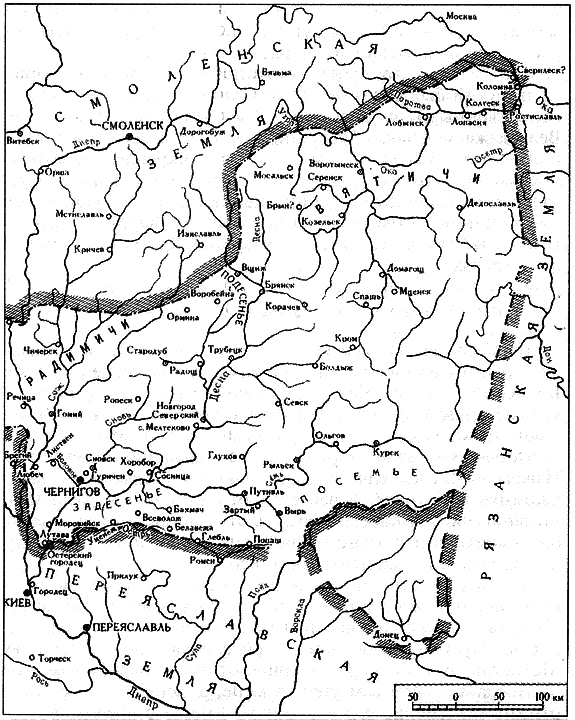 Москва
СМОЛЕНСКАЯ
Вязьма
Сверилеск?
Коломна
Ока
Колтеск
Ростиславль
Лобынск
Лопасня
Витебск
Днепр
СМОЛЕНСК
Дорогобуж
ЗЕМЛЯ
Угра
Орша
Мосальск
Воротынеск
Серенск
Ока
Осетр
ВЯТИЧИ
Мстиславль
Брын?
Козельск
Дедославль
ЗЕМЛЯ
Кричев
Изяславль
Десна
Вщиж
ПОДЕСЕНЬЕ
Домагощ
Воробейна
Брянск
Мценск
Ормина
Карачев
Спашь
Дон
Чичерск
РАДИМИЧИ
Стародуб
Трубецк
Кром
Радощ
Болдыж
РЯЗАНСКАЯ
Речица
Сож
Гомий
Ропеск
Десна
Севск
Сновь
Новгород
Северский
с. Мелтеково
Листвен
Ольгов
Курск
Брягин
Любеч
Сновск
Хоробор
Глухов
Рыльск
Гуричев
Сосница
ПОСЕМЬЕ
ЧЕРНИГОВ
Путивль
Семь
ЗАДЕСЕНЬЕ
Зартый
Вырь
Бахмач
Моровийск
Всеволож
Белавежа
Лутава
Глебль
Попаш
Остерский
городец
Ромен
ПЕРЕЯСЛАВСКАЯ
Прилук
Псла
Городец
КИЕВ
Ворскла
Донец
ПЕРЕЯСЛАВЛЬ
Торческ
Сула
ЗЕМЛЯ
Рось
Днепр
50 0 50 100 км